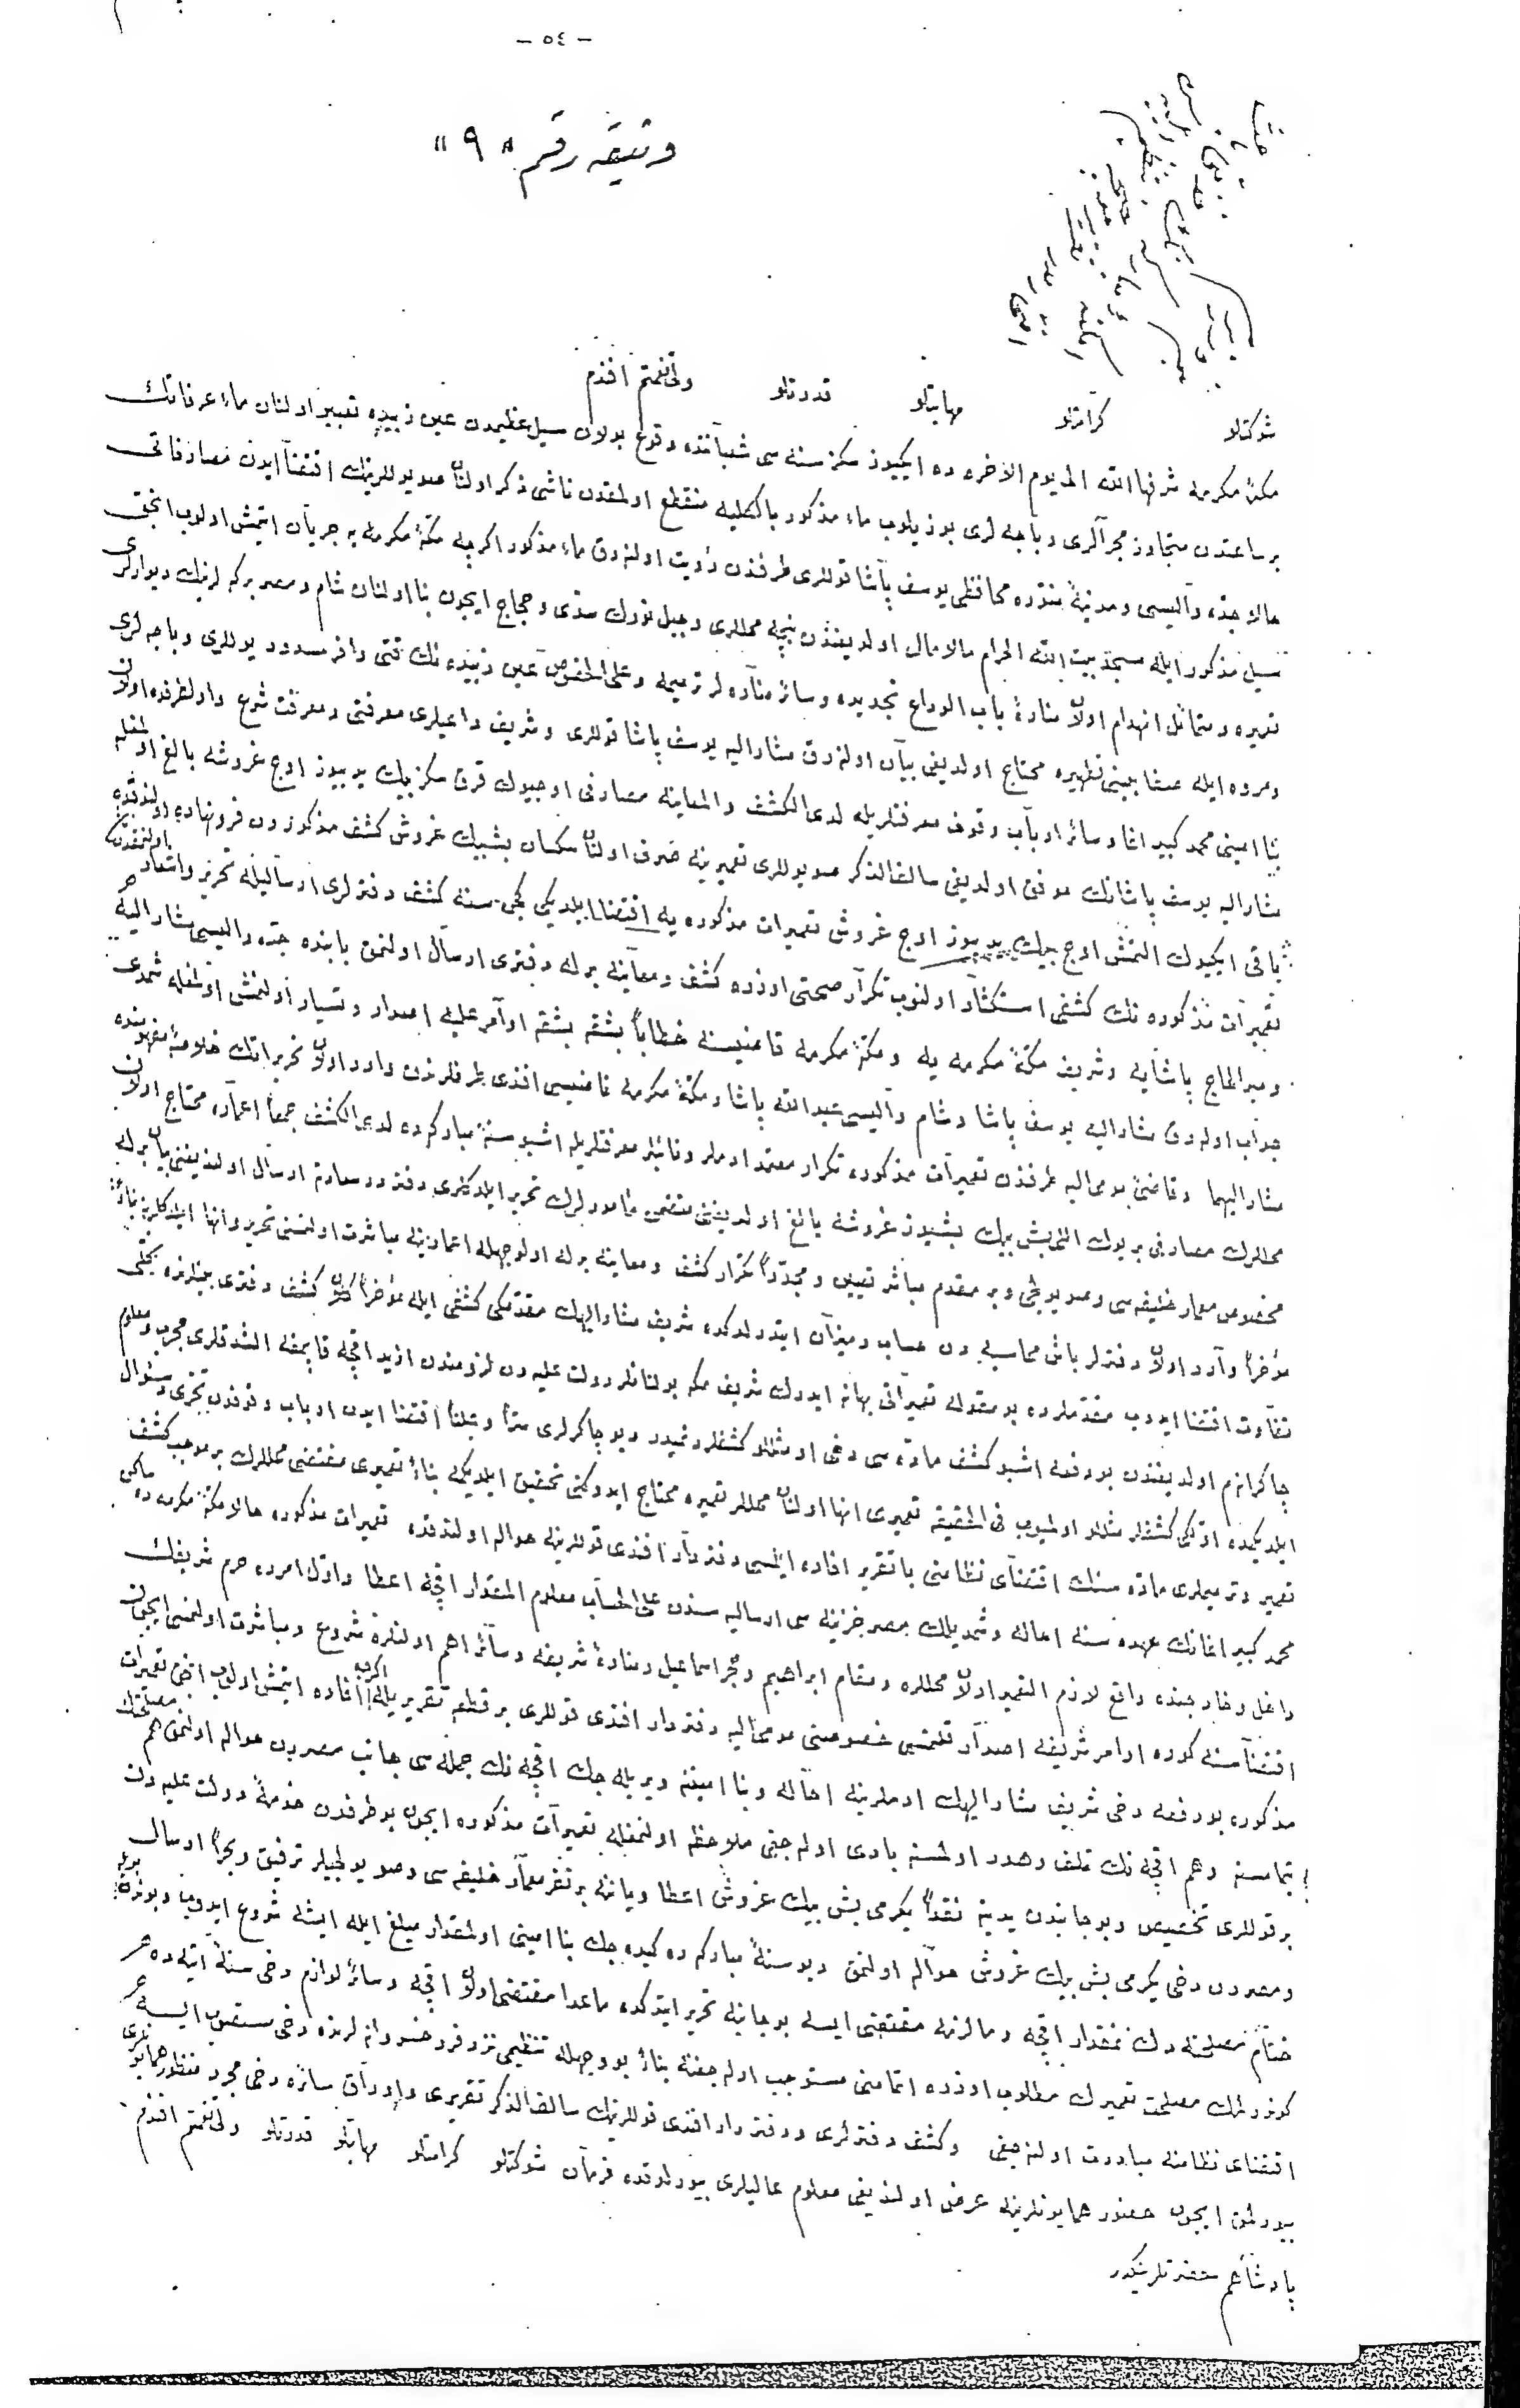 - ٥٤ -
وثيقه رقم « ٩ »
شوكتلو كرامتلو مهابتلو قدرتلو ولى نعمتم افندم
مكهٔ مكرمه شرفها الله الى يوم الاخره ده ايكيوز سكز سنه سى شعباننده وقوع بولان سيل عظيمدن عين زبيده تعبير اولنان ماء عرفاتك
بر ساعتدن متجاوز مجرالرى و باجه لرى بوزيلوب ماء مذكور بالكليه منقطع اولمقدن ناشى ذكر اولنان صويوللرينك اقتضا ايدن مصارفاتى
حالا جده واليسى و مدينهٔ منوره محافظى يوسف پاشا قوللرى طرفندن رؤيت اولنه رق ماء مذكور اكرچه مكهٔ مكرمه يه جريان ايتمش اولوب انجق
سيل مذكور ايله مسجد بيت الله الحرام مالامال اولديغندن نيچه محللرى و جبل نورك سدى و حجاج ايچون بنا اولنان شام و مصر بركه لرينك ديوارلرى
تعميره و متمائل انهدام اولان منارهٔ باب الوداع تجديده و سائر مناره لر ترميمه و على الخصوص عين زبيده نك تحتى وافر مسدود يوللرى و باجه لرى
و مروه ايله صفا بينى تطهيره محتاج اولديغى بيان اولنه رق مشار اليه يوسف پاشا قوللرى و شريف داعيلرى معرفتى و معرفت شرع و اولطرفده اولان
بنا امينى محمد كبير اغا و سائر ارباب وقوف معرفتلريله لدى الكشف والمعاينه مصارفى اوچيوك قرق سكز بيك يديوز اوچ غروشه بالغ اولمغله
مشار اليه يوسف پاشانك موفق اولديغى سالف الذكر صويوللرى تعميرينه صرف اولنان سكسان بشبيك غروش كشف مذكوردن فرونهاده اولندقده
باقى ايكيوك التمش اوچ بيك يديوز اوچ غروش تعميرات مذكوره يه اقتضا ايلديكى كچن سنه كشف دفترلرى ارساليله تحرير و اشعار اولنمقدن
تعميرات مذكوره نك كشفى استكثار اولنوب تكرار صحتى اوزره كشف و معاينه برله دفترى ارسال اولنمق بابنده جده واليسى مشار اليه
و مير الحاج پاشايه و شريف مكهٔ مكرمه يه و مكهٔ مكرمه قاضيسنه خطاباً بشقه بشقه اوامر عليه اصدار و تسيار اولنمش اولمغله شمدى
جواب اوله رق مشار اليه يوسف پاشا و شام واليسى عبدالله پاشا و مكهٔ مكرمه قاضيسى افندى طرفلرندن وارد اولان تحريراتك خلاصهٔ مفهومنده
مشار اليهما و قاضئ مومى اليه طرفندن تعميرات مذكوره تكرار معتمد ادملر و نائبلر معرفتلريله اشبو سنهٔ مباركه ده لدى الكشف جمعاً اعماره محتاج اولان
محللرك مصارفى بر يوك اللى بش بيك بشيوز غروشه بالغ اولديغنى متضمن مأمورلرك تحرير ايلدكلرى دفتر درسعادته ارسال اولنديغنى بيان برله
مخصوص معمار خليفه سى و صويولجى و بر مقدم مباشر تعيين و مجدداً تكرار كشف و معاينه برله اولوجهله اعمارينه مباشرت اولنمسنى تحرير و انها ايلدكلرينه بناءً
مؤخراً وارد اولان دفترلر باش محاسبه دن حساب و ميزان ايتدرلدكده شريف مشار اليهك مقدمكى كشفى ايله مؤخراً كلان كشف دفترى بينلرنده كلى
تفاوت اقتضا ايدوب مقدملرده بو مقوله تعميراتى بهانه ايدرك شريف مكه بولنانلر دولت عليه دن لزومندن ازيد اقچه قاپمغه الشدقلرى مجرب و معلوم
چاكرانم اولديغندن بو دفعه اشبو كشف ماده سى دخى او مثللو كشفلردنميدر ديو چاكرلرى سراً و علناً اقتضا ايدن ارباب وقوفدن تحرى و سؤال
ايلديكمده اولكى كشفلر مثللو اولميوب فى الحقيقه تعميرى انها اولنان محللر تعميره محتاج ايدوكنى تحقيق ايلديكمه بناءً تعميرى مقتضى محللرك بر موجب كشف
تعمير و ترميملرى ماده سنك اقتضاى نظامنى با تقرير افاده ايلمسى دفتردار افندى قوللرينه حواله اولندقده تعميرات مذكوره حالا مكهٔ مكرمه ده ساكن
محمد كبير اغانك عهده سنه احاله و شمديلك مصر خزينه سى ارساليه سندن على الحساب معلوم المقدار اقچه اعطا و اول امرده حرم شريفك
داخل و خارجنده واقع لازم التعمير اولان محللره و مقام ابراهيم و حجر اسماعيل و منارهٔ شريفه و سائر اهم اولنلره شروع و مباشرت اولنمسى ايچون
اقتضاسنه كوره اوامر شريفه اصدار قلنمسى خصوصنى مومى اليه دفتردار افندى قوللرى بر قطعه تقريريله اكرچه افاده ايتمش اولوب انجق تعميرات
مذكوره بو دفعه دخى شريف مشار اليهك ادملرينه احاله و بنا امينه ويريله جك اقچه نك جمله سى جانب مصردن حواله اولنمق هم مصلحتك
تمامسنه و هم اقچه نك تلف و هدر اولمسنه بادى اوله جغى ملاحظه اولنمغله تعميرات مذكوره ايچون بو طرفدن خدمهٔ دولت عليه دن
بر قوللرى تخصيص و بو جانبدن يدينه نقداً يكرمى بش بيك غروش اعطا و يانينه بر نفر معمار خليفه سى و صويولجيلر ترفيق و بحراً ارسال
و مصردن دخى يكرمى بش بيك غروش حواله اولنمق و بو سنهٔ مباركه ده كيده جك بنا امينى اولمقدار مبلغ ايله ايشه شروع ايدوب و بوندن بويله
ختام مصلحته دك نمقدار اقچه و مالزمه مقتضى ايسه بو جانبه تحرير ايتدكده ماعدا مقتضى اولان اقچه و سائر لوازم دخى سنهٔ آتيه ده
كوندرلمك مصلحت تعميرك مطلوب اوزره اتمامنى مستوجب اوله جغنه بناءً بو وجهله تنظيمى نزد فرد خسروانه لرنده دخى مستصوب ايسه
اقتضاى نظامنه مبادرت اولنه جغى و كشف دفترلرى و دفتردار افندى قوللرينك سالف الذكر تقريرى و اوراق سائره دخى مجرد منظور همايونلرى
بيورلمق ايچون حضور همايونلرينه عرض اولنديغى معلوم عاليلرى بيورلدقده فرمان شوكتلو كرامتلو مهابتلو قدرتلو ولى نعمتم افندم
پادشاهم حضرتلرينكدر